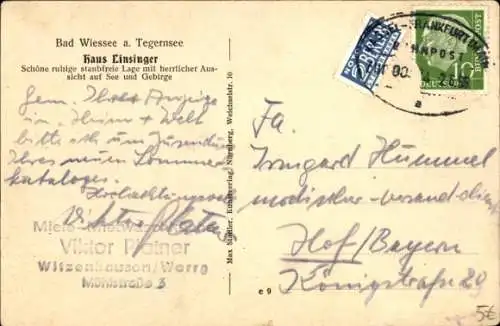 Bad Wiessee a. Tegernsee
Haus Linsinger
Schöne ruhige staubfreie Lage mit herrlicher Aus-
sicht auf See und Gebirge
Gem. Ihrer Anzeige
in „Heim + Welt
bitte ich um Zusendung
Ihres neuen Sommer
kataloges.
Hochachtungsvoll
Viktor Platner
Viktor Platner
Witzenhausen/Werra
Mühlstraße 3
Max Stadler, Kunstverlag, Nürnberg, Welchselstr. 10
e 9
NOTOPFER
2 BERLIN
STEUERMARKE
FRANKFURT
BAHNPOST
a
10
DEUTSCHE
BUNDESPOST
Fa.
Irmgard Hummel
modischer-versand-dienst
Hof/Bayern
Königstraße 29
5€